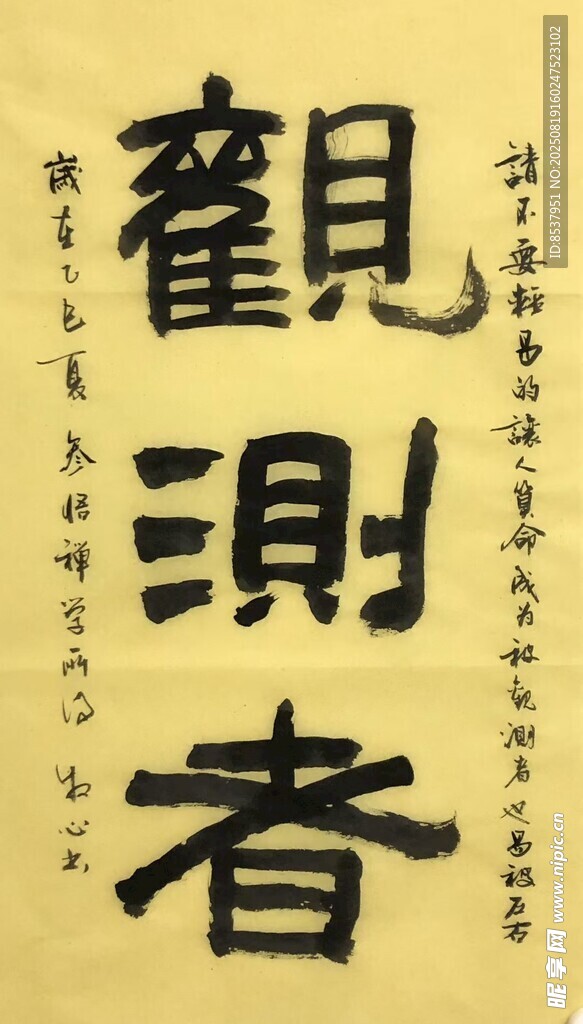 請不要輕易的讓人算命成为被觀測者也易被左右
觀測者
歲在乙巳夏参悟禅学所得
心书
ID:8537951 NO:20250819160247523102
昵享网 www.nipic.cn